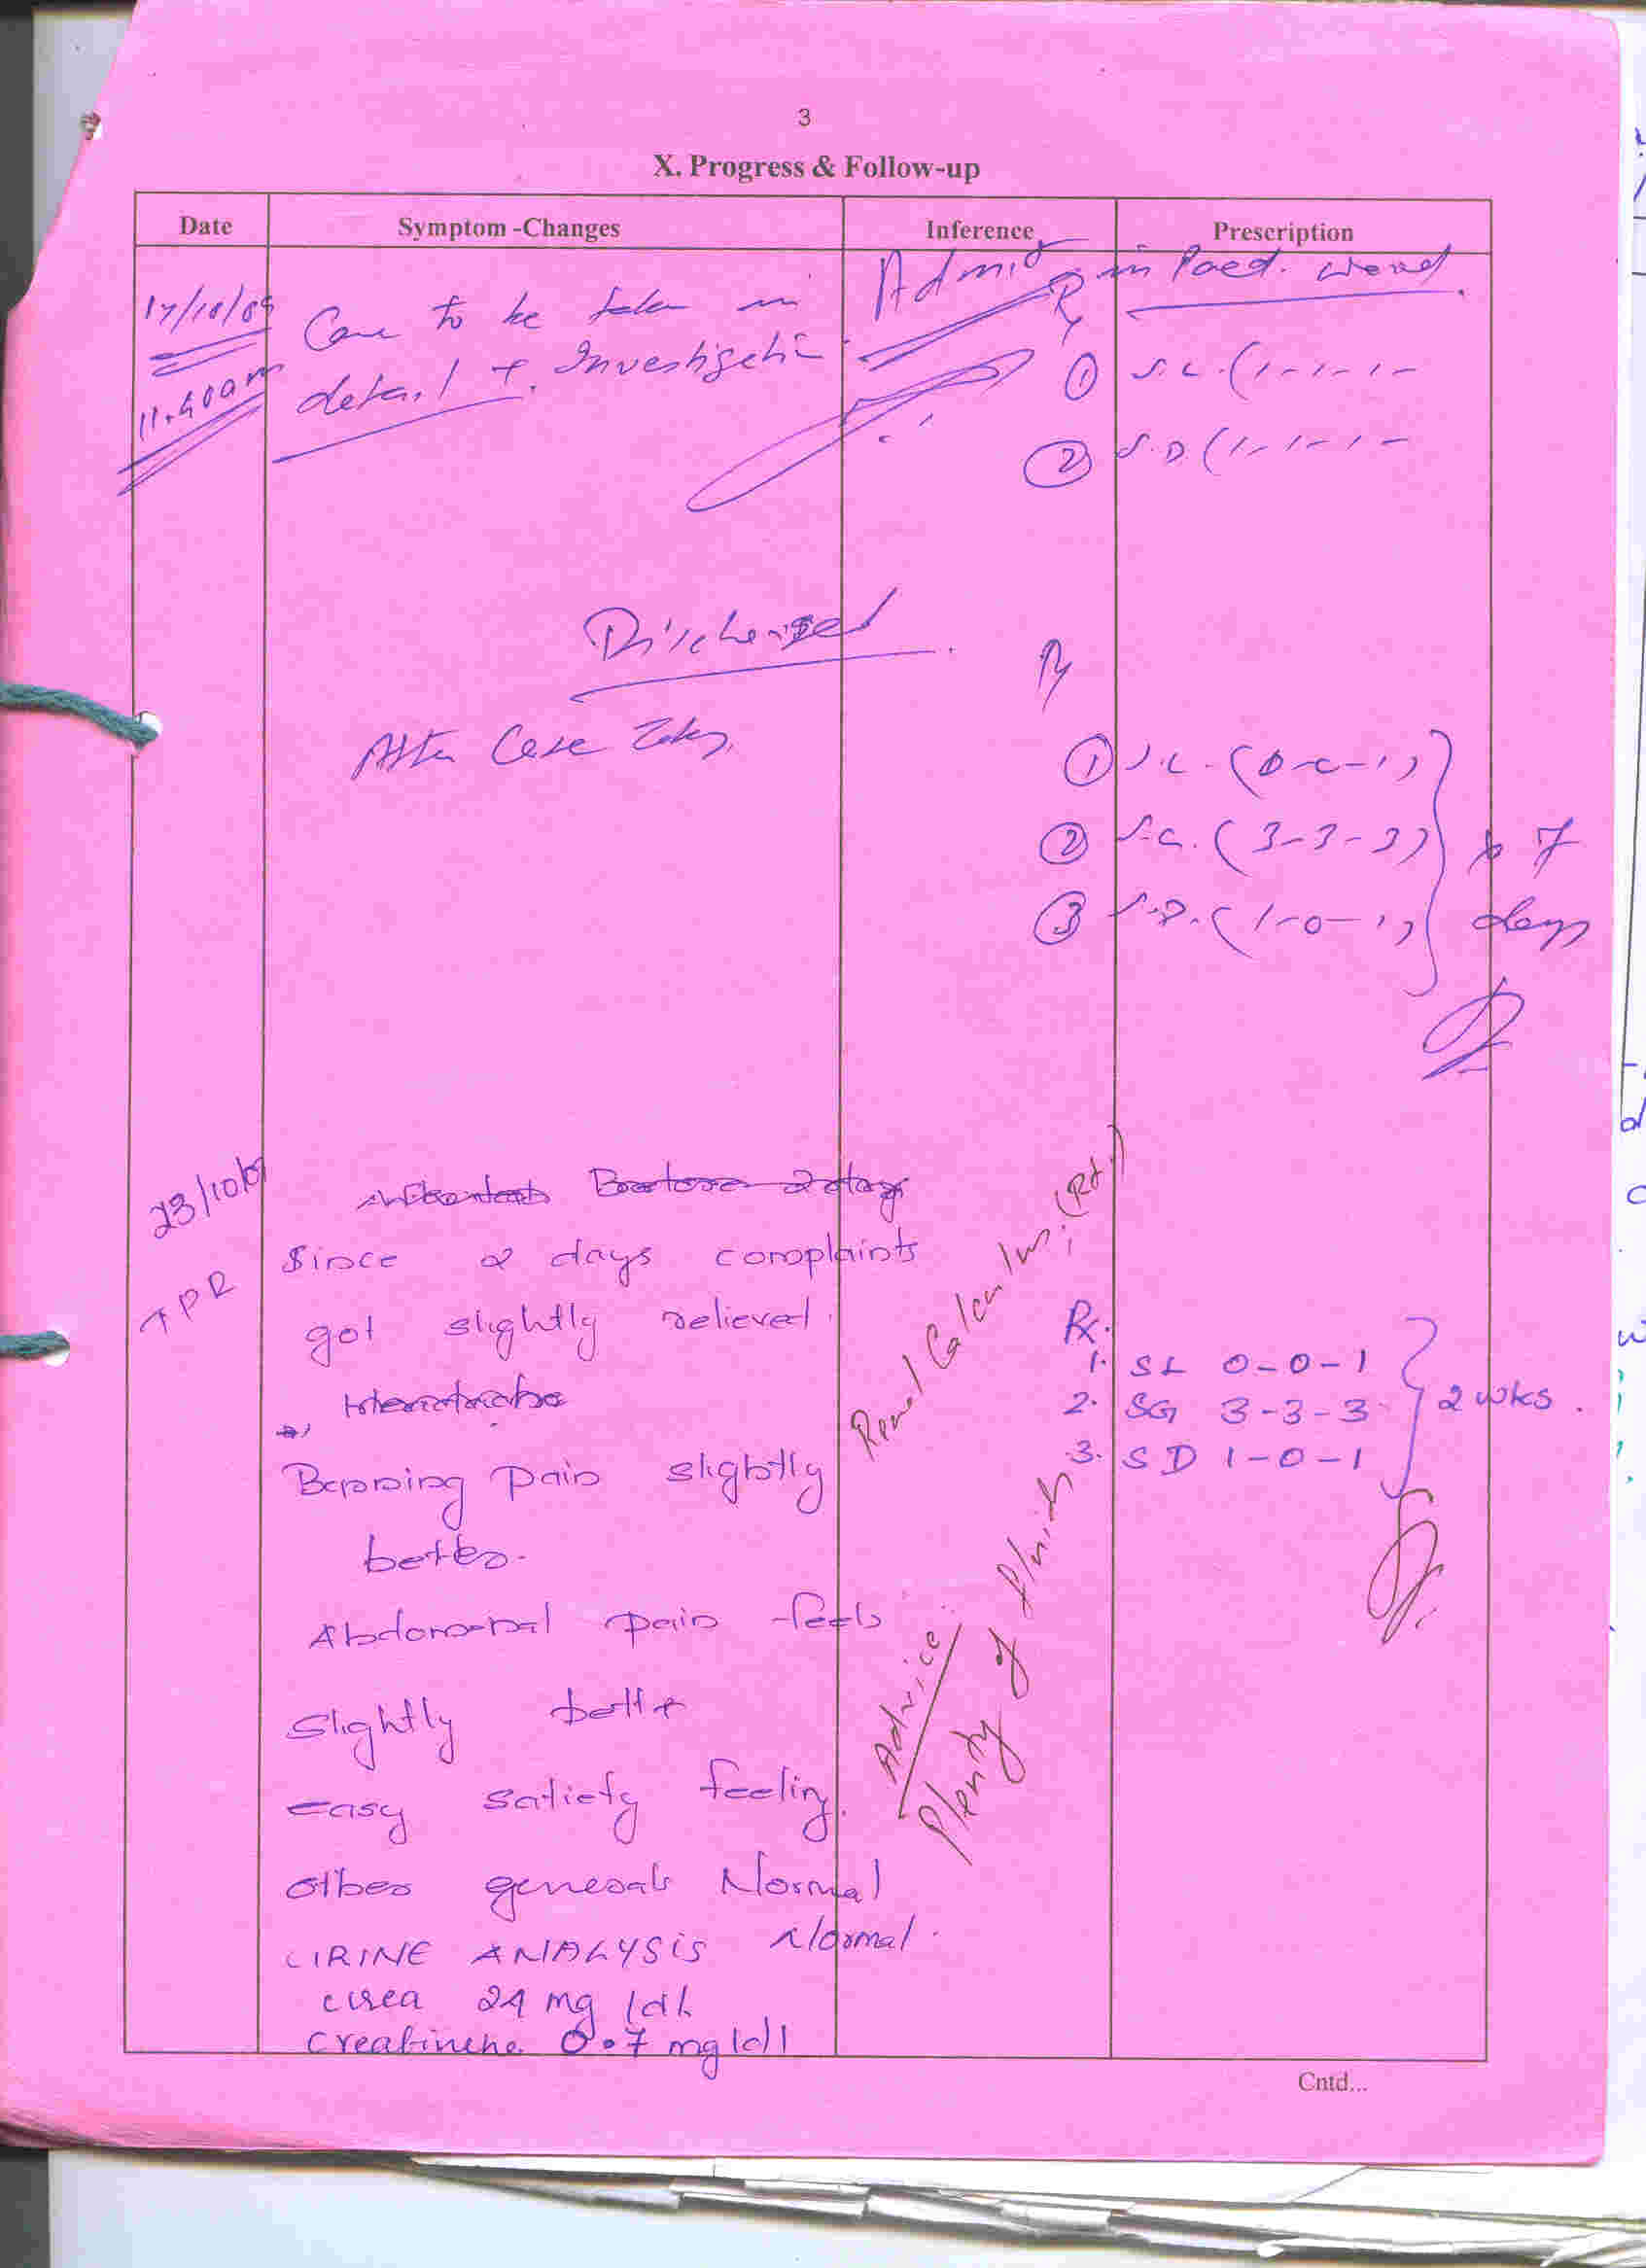 3
X. Progress & Follow-up
Date Symptom -Changes Inference Prescription
17/10/09 Case to be taken in Admit in Paed. Ward.
11.40am detail & Investigation.
Rx
① S.L. (1-1-1-1-
② S.D. (1-1-1-1-
Discharged
After Case
Rx
① S.L. (0-0-1)
② S.G. (3-3-3) x 7
③ S.D. (1-0-1) days
23/10/09 Before 2 days
Since 2 days complaints
got slightly relieved.
Burning pain slightly
better.
Abdominal pain feels
slightly better
easy satiety feeling.
other generals Normal
URINE ANALYSIS Normal.
urea 24 mg/dl
creatinine 0.7 mg/dl
Renal Calculus; (Rt.)
Advice:
Plenty of fluids
Rx.
1. SL 0-0-1
2. SG 3-3-3 2 wks.
3. SD 1-0-1
Cntd...